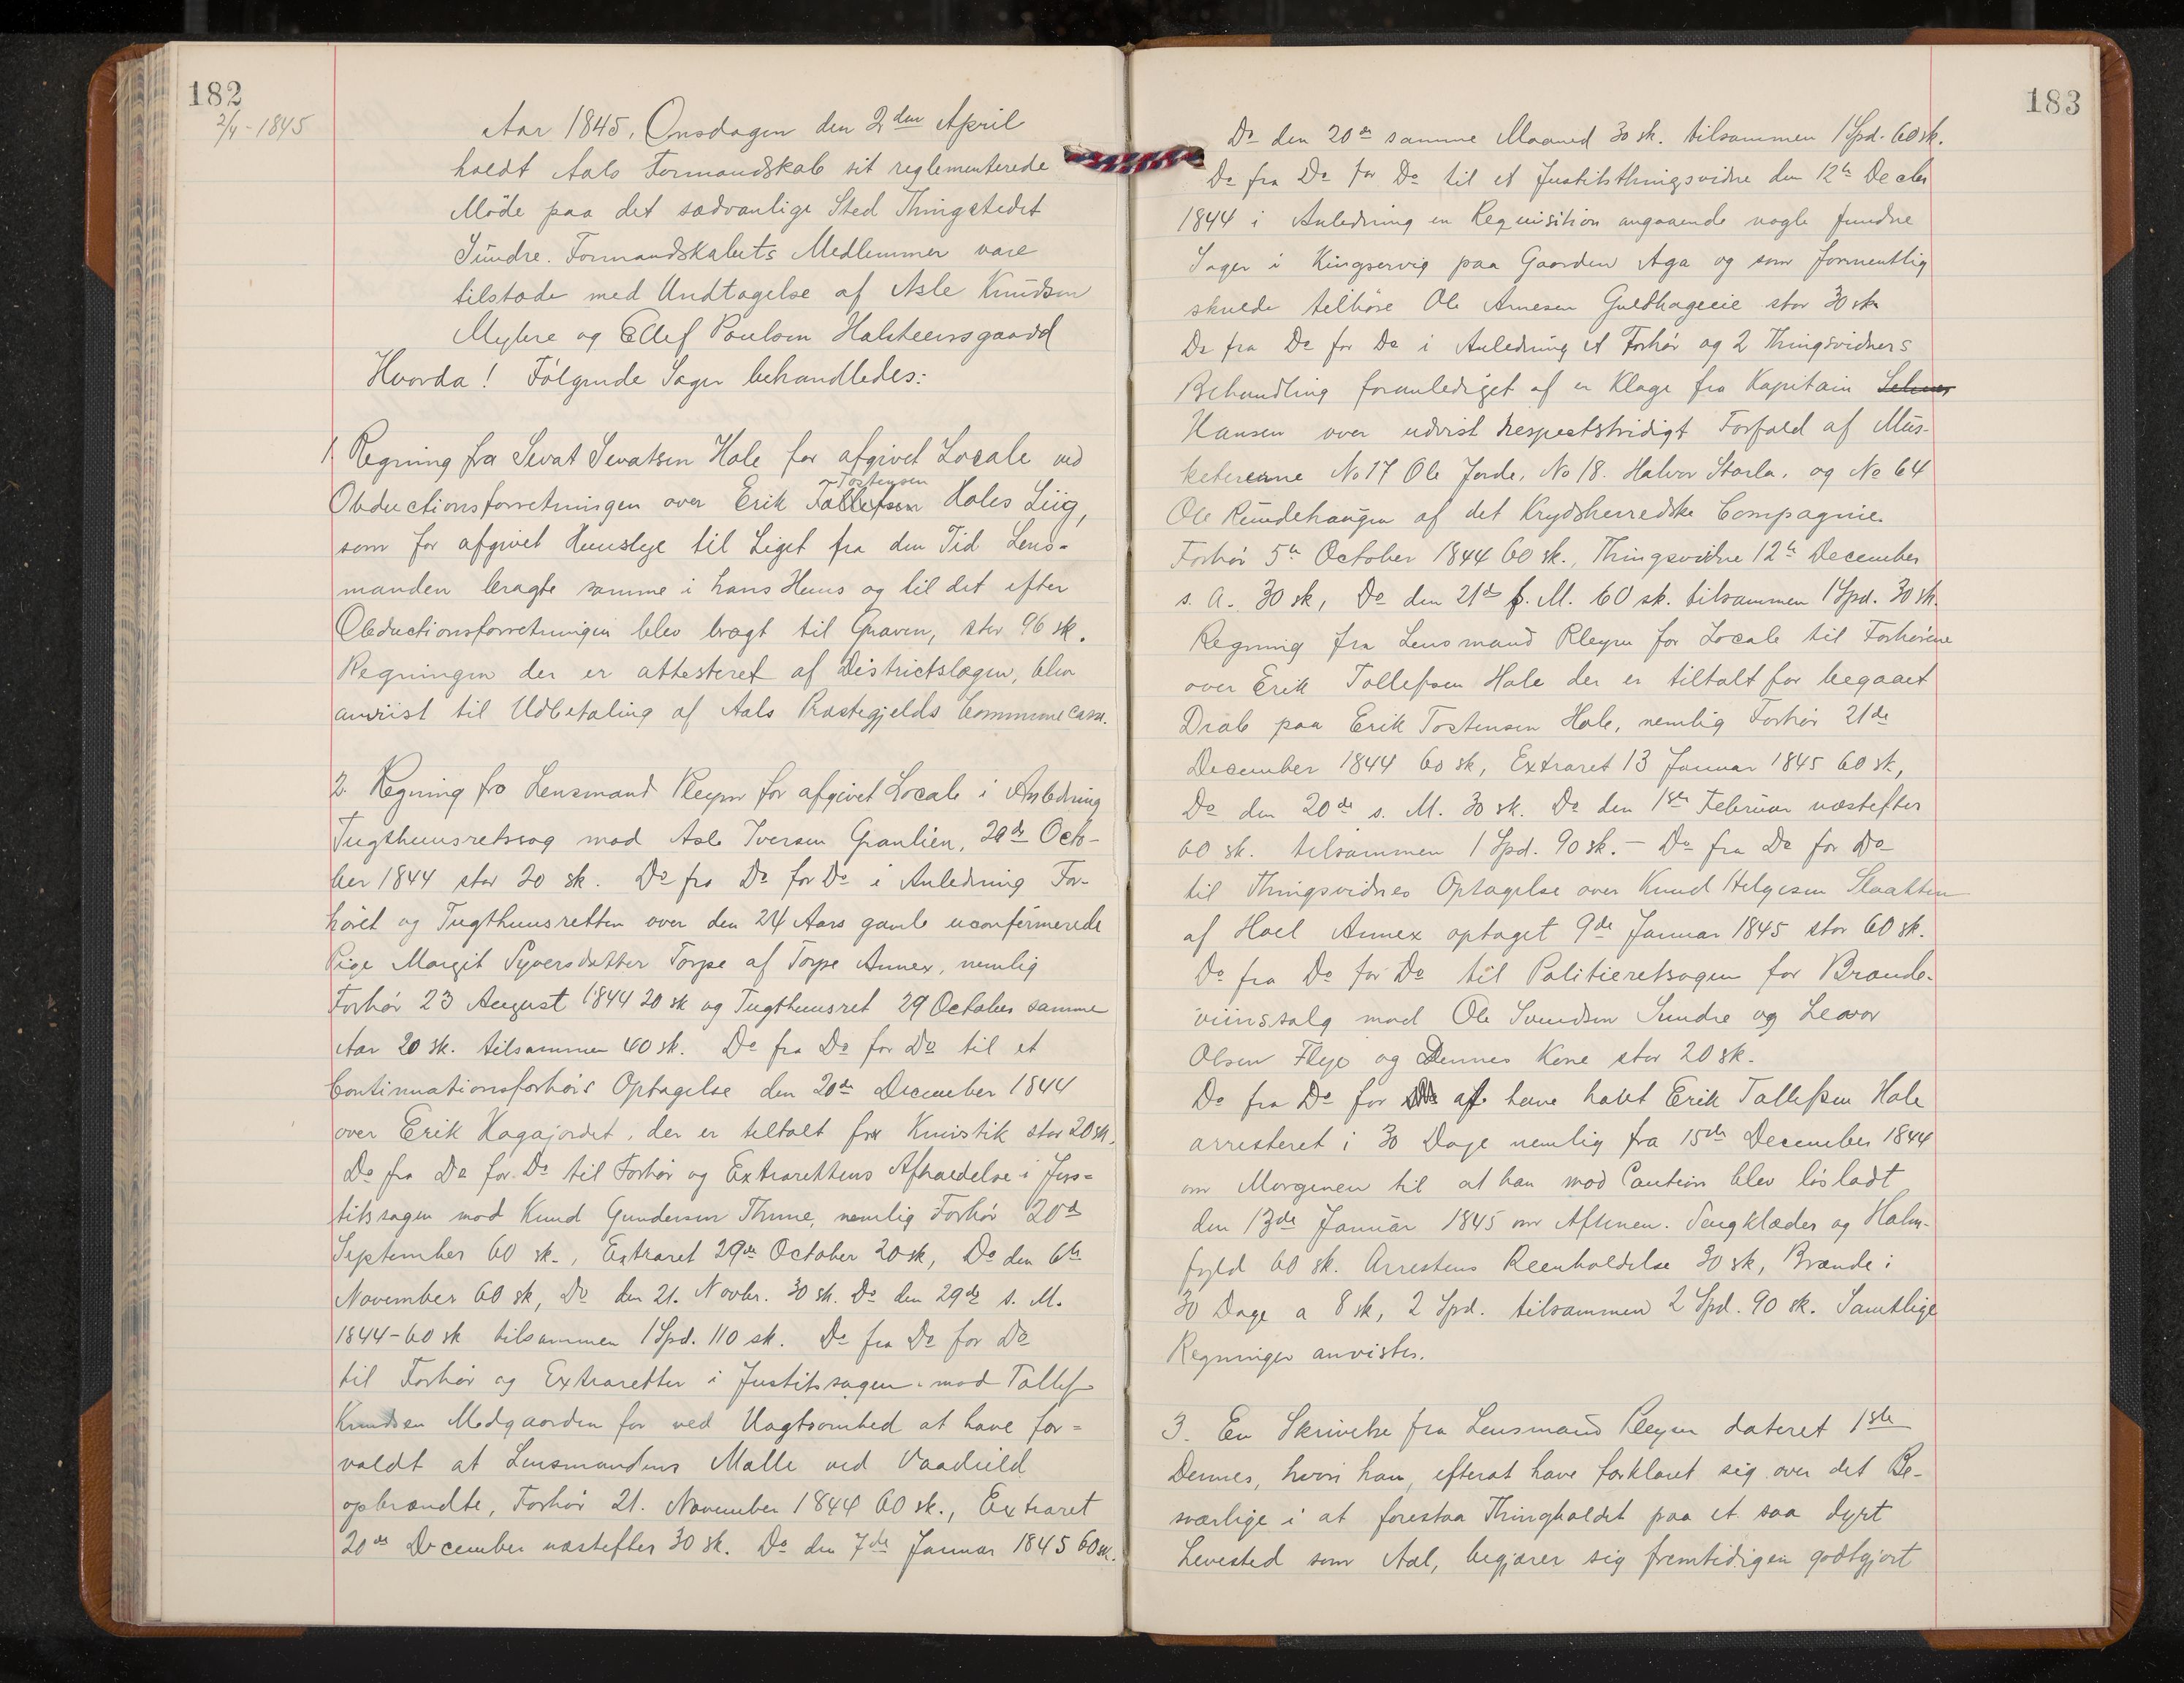 182
2/4-1845
Aar 1845, Onsdagen den 2den April
holdt Aals Formandskab sit reglementerede
Möde paa det sædvanlige Sted Thingstedet
Sündre. Formandskabets Medlemmer vare
tilstæde med Undtagelse af Asle Knudsen
Myhre og Ellef Poulsen Halsteensgaard
Hvorda! Fölgende Sager behandledes:
1. Regning fra Sevat Sevatsen Hole for afgivet Locale ved
Tostensen
Obductionsforretningen over Erik Tollefsen Holes Liig,
som for afgivet Huusleje til Liget fra den Tid Lens-
manden bragte samme i hans Huus og til det efter
Obductionsforretningen blev bragt til Graven, stor 96 sk.
Regningen der er attesteret af Districtslægen, blev
anviist til Udbetaling af Aals Præstegjelds Communecasse.
2. Regning fra Lensmand Pleym for afgivet Locale i Anledning
Tugthuusretssag mod Asle Iversen Granlien, 29de Octo-
ber 1844 stor 20 sk. Do fra Do for Do i Anledning For-
höret og Tugthuusretten over den 24 Aars gamle uconfirmerede
Pige Margit Syversdatter Torpe af Torpe Annex, nemlig
Forhör 23 August 1844 20 sk og Tugthuusret 29 October samme
Aar 20 sk. tilsammen 40 sk. Do fra Do for Do til et
Continuationsforhörs Optagelse den 20de December 1844
over Erik Hagajordet, der er tiltalt for Knivstik stor 20 sk.
Do fra Do for Do til Forhör og Extrarettens Afholdelse i Jus-
titssagen mod Knud Gundersen Thune, nemlig Forhör 20de
September 60 sk., Extraret 29de October 20 sk, Do den 6te
November 60 sk, Do den 21. Novbr. 30 sk. Do den 29de s. M.
1844-60 sk tilsammen 1 Spd. 110 sk. Do fra Do for Do
til Forhör og Extraretter i Justitssagen mod Tollef
Knudsen Medgaarden for ved Uagtsomhed at have for-
voldt at Lensmandens Malle ved Vaadeild
opbrændte, Forhör 21. November 1844 60 sk., Extraret
20de December næstefter 30 sk. Do den 7de Januar 1845 60 sk.
183
Do den 20de samme Maaned 30 sk. tilsammen 1 Spd. 60 sk.
Do fra Do for Do til et Justitsthingsvidne den 12te Decbr
1844 i Anledning en Requisition angaaende nogle fundne
Sager i Kingservig paa Gaarden Aga og som formentlig
skulde tilhöre Ole Arnesen Guldhageeie stor 30 sk
Do fra Do for Do i Anledning et Forhör og 2 Thingsvidners
Behandling foranlediget af en Klage fra Kapitain
Hansen over udvist respectstridigt Forfald af Mus-
ketererne No 17 Ole Jorde, No 18. Halvor Storla, og No 64
Ole Rundehaugen af det Krydsherredske Compagnie.
Forhör 5te October 1844 60 sk., Thingsvidne 12te December
s. A. 30 sk, Do den 21de s. M. 60 sk. tilsammen 1 Spd. 30 sk.
Regning fra Lensmand Pleym for Locale til Forhörene
over Erik Tollefsen Hole der er tiltalt for begaaet
Drab paa Erik Tostensen Hole, nemlig Forhör 21de
December 1844 60 sk, Extraret 13 Januar 1845 60 sk,
Do den 20de s. M. 30 sk. Do den 1ste Februar næstefter
60 sk. tilsammen 1 Spd. 90 sk. - Do fra Do for Do
til Thingsvidnes Optagelse over Knud Helgesen Slaatten
af Hoel Annex optaget 9de Januar 1845 stor 60 sk.
Do fra Do for Do til Politieretsagen for Brænde-
viinssalg mod Ole Svendsen Sundre og Levor
Olsen Flejo og Dennes Kone stor 20 sk.
Do fra Do for at have havt Erik Tollefsen Hole
arresteret i 30 Dage nemlig fra 15de December 1844
om Morgenen til at han mod Caution blev lösladt
den 13de Januar 1845 om Aftenen. Sengklæder og Halm-
fyld 60 sk. Arrestens Reenholdelse 30 sk, Brænde i
30 Dage a 8 sk, 2 Spd. tilsammen 2 Spd. 90 sk. Samtlige
Regninger anvistes.
3. En Skrivelse fra Lensmand Pleym dateret 1ste
Dennes, hvori han, efterat have forklaret sig over det Be-
sværlige i at forestaa Thingholdet paa et saa dyrt
Levested som Aal, begjærer sig fremtidigen godtgjort